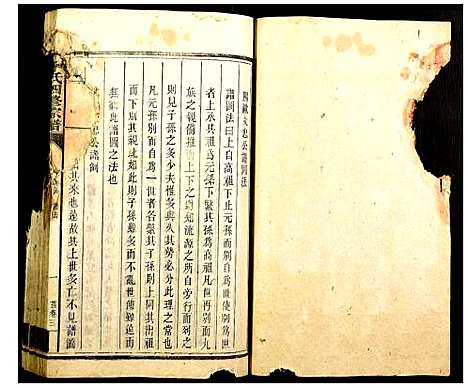 歐陽文忠公譜圖法
譜圖法曰上自高祖下止玄孫而別自為世使別為世
者上承其祖為元孫下繫其孫為高祖凡世再別而九
族之親備推而上下之則知源流之所自旁行而列之
則見子孫之多少夫惟多與久其勢必分此理之常也
凡元孫別而自為一世者各繫其子孫則上同其出祖
而下別其親疏如此則子孫雖多而不亂世傳雖遠而
無窮此譜圖之法也
公譜例
其來也遠故其上世多亡不見譜圖
氏四修宗譜
譜法
一
首卷三